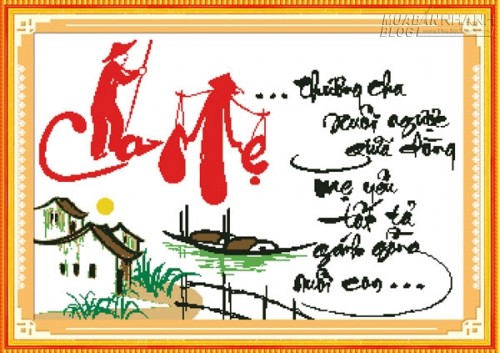 MUABANNHANH
BLOG
Cha Mẹ
... thương cha
xuôi ngược
giữa dòng
mẹ yêu
tất tả
gánh gồng
nuôi con ...